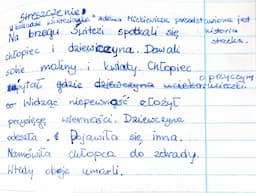 Streszczenie
W balladzie "Świtezianka" Adama Mickiewicza przedstawiona jest
historia
strzelca.
Na brzegu Świtezi spotkali się
chłopiec i dziewczyna. Dawali
sobie maliny i kwiaty. Chłopiec
pytał gdzie dziewczyna
Widząc niepewność złożył
przysięgę wierności. Dziewczyna
odeszła. Pojawiła się inna.
Namówiła chłopca do zdrady.
Wtedy oboje umarli.